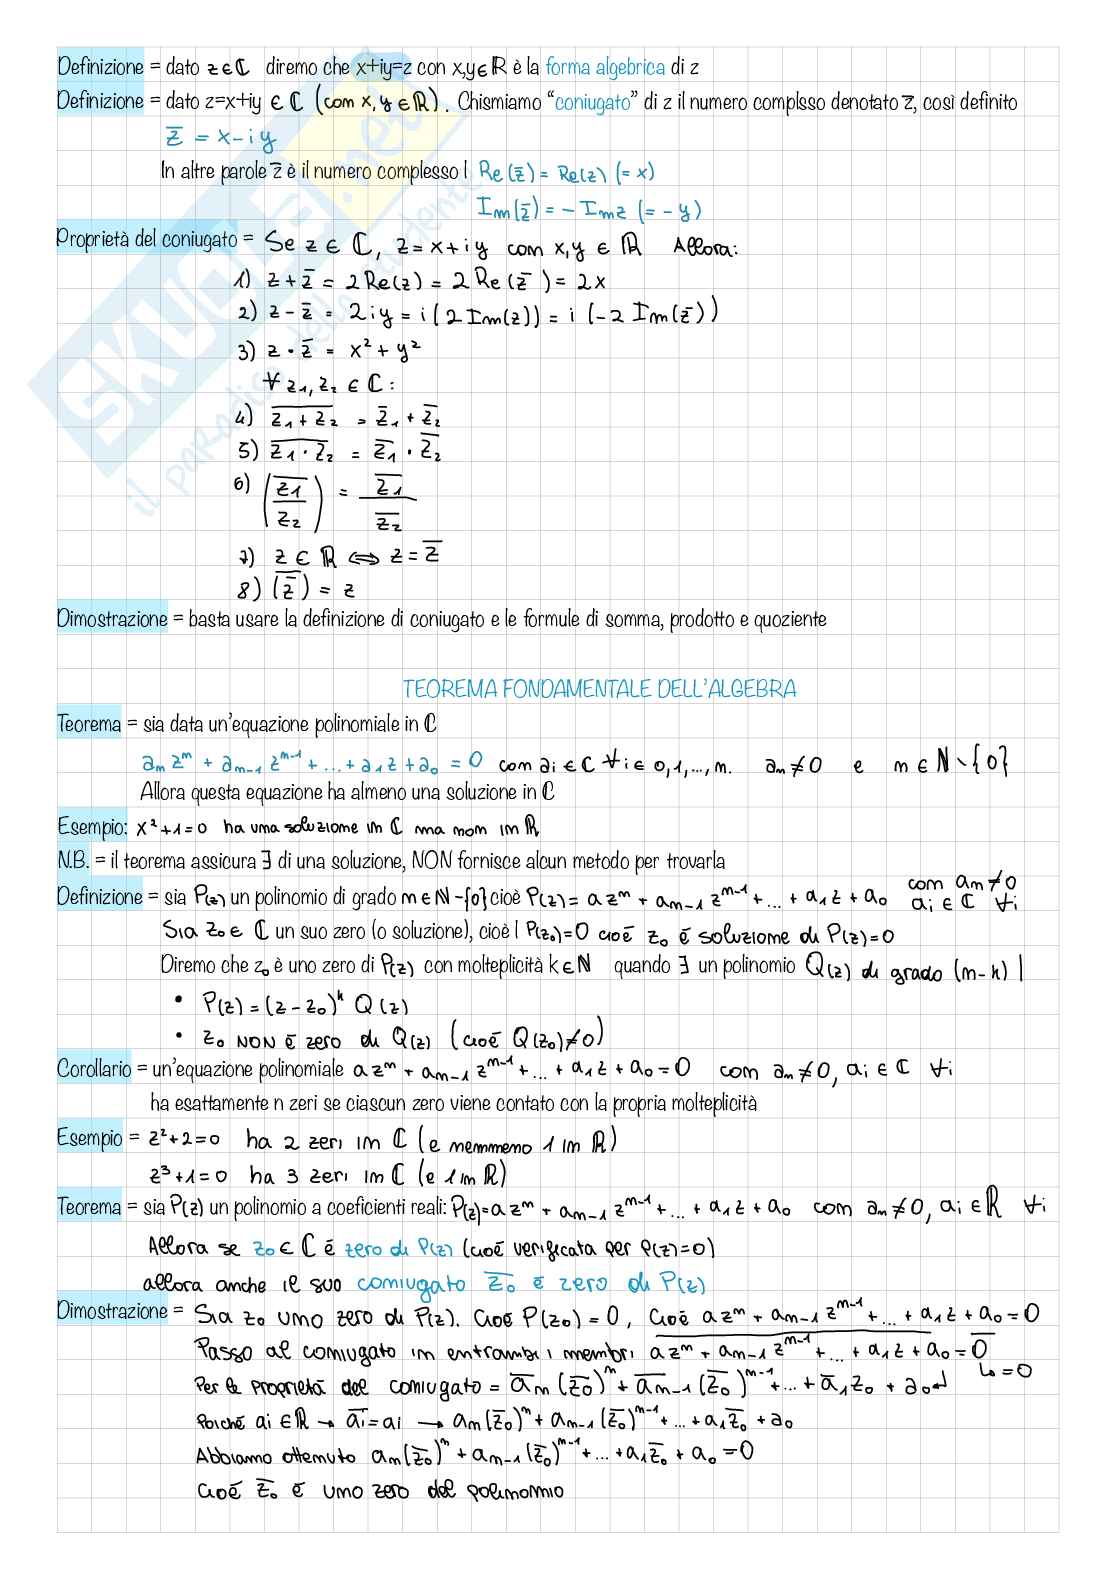 Definizione = dato z∈ℂ diremo che x+iy=z con x,y∈ℝ è la forma algebrica di z
Definizione = dato z=x+iy ∈ ℂ (con x, y ∈ ℝ). Chismiamo “coniugato” di z il numero complsso denotato z̅, così definito
z̅ = x-iy
In altre parole z̅ è il numero complesso | Re(z̅) = Re(z) (= x)
Im(z̅) = - Imz (= - y)
Proprietà del coniugato = Se z ∈ ℂ, z = x+iy con x,y ∈ ℝ Allora:
1) z + z̅ = 2Re(z) = 2Re(z̅) = 2x
2) z - z̅ = 2iy = i(2Im(z)) = i(-2Im(z̅))
3) z · z̅ = x² + y²
∀ z₁, z₂ ∈ ℂ:
4) \overline{z₁ + z₂} = z̅₁ + z̅₂
5) \overline{z₁ · z₂} = z̅₁ · z̅₂
6) (\overline{z₁/z₂}) = z̅₁/z̅₂
7) z ∈ ℝ ⟺ z = z̅
8) \overline{(z̅)} = z
Dimostrazione = basta usare la definizione di coniugato e le formule di somma, prodotto e quoziente
TEOREMA FONDAMENTALE DELL'ALGEBRA
Teorema = sia data un'equazione polinomiale in ℂ
aₙzⁿ + aₙ₋₁zⁿ⁻¹ + ... + a₁z + a₀ = 0 con aᵢ ∈ ℂ ∀i ∈ 0,1,...,n. aₙ ≠ 0 e n ∈ ℕ∖{0}
Allora questa equazione ha almeno una soluzione in ℂ
Esempio: x²+1=0 ha una soluzione in ℂ ma non in ℝ
N.B. = il teorema assicura ∃ di una soluzione, NON fornisce alcun metodo per trovarla
Definizione = sia P(z) un polinomio di grado n∈ℕ-{0} cioè P(z) = azⁿ + aₙ₋₁zⁿ⁻¹ + ... + a₁z + a₀ con aₙ≠0 aᵢ ∈ ℂ ∀i
Sia z₀ ∈ ℂ un suo zero (o soluzione), cioè | P(z₀)=0 cioè z₀ è soluzione di P(z)=0
Diremo che z₀ è uno zero di P(z) con molteplicità k∈ℕ quando ∃ un polinomio Q(z) di grado (n-k) |
• P(z) = (z-z₀)ᵏ Q(z)
• z₀ NON è zero di Q(z) (cioè Q(z₀)≠0)
Corollario = un'equazione polinomiale azⁿ + aₙ₋₁zⁿ⁻¹ + ... + a₁z + a₀ = 0 con aₙ≠0, aᵢ ∈ ℂ ∀i
ha esattamente n zeri se ciascun zero viene contato con la propria molteplicità
Esempio = z²+2=0 ha 2 zeri in ℂ (e nemmeno 1 in ℝ)
z³+1=0 ha 3 zeri in ℂ (e 1 in ℝ)
Teorema = sia P(z) un polinomio a coeficienti reali: P(z)=azⁿ + aₙ₋₁zⁿ⁻¹ + ... + a₁z + a₀ con aₙ≠0, aᵢ ∈ ℝ ∀i
Allora se z₀ ∈ ℂ è zero di P(z) (cioè verificata per P(z)=0)
allora anche il suo coniugato z̅₀ è zero di P(z)
Dimostrazione = Sia z₀ uno zero di P(z). Cioè P(z₀) = 0, cioè azⁿ + aₙ₋₁zⁿ⁻¹ + ... + a₁z + a₀ = 0
Passo al coniugato in entrambi i membri \overline{azⁿ + aₙ₋₁zⁿ⁻¹ + ... + a₁z + a₀} = \overline{0}
Per le proprietà del coniugato = a̅ₙ(z̅₀)ⁿ + a̅ₙ₋₁(z̅₀)ⁿ⁻¹ + ... + a̅₁z₀ + a₀ ↲ ↳ = 0
Poiché aᵢ ∈ ℝ → a̅ᵢ = aᵢ → aₙ(z̅₀)ⁿ + aₙ₋₁(z̅₀)ⁿ⁻¹ + ... + a₁z̅₀ + a₀
Abbiamo ottenuto aₙ(z̅₀)ⁿ + aₙ₋₁(z̅₀)ⁿ⁻¹ + ... + a₁z̅₀ + a₀ = 0
cioè z̅₀ è uno zero del polinomio
SKUOLA.net
il paradiso dello studente